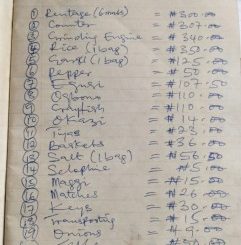 ① Rentage (6 months) = ₦300.00
② Counter = ₦307.00
③ Grinding Engine = ₦340.00
④ Rice (1 bag) = ₦350.00
⑤ Garri (1 bag) = ₦125.00
⑥ Pepper = ₦50.00
⑦ Egusi = ₦107.50
⑧ Ogbono = ₦110.00
⑨ Crayfish = ₦110.00
⑩ Okazi = ₦14.00
⑪ = ₦23.00
⑫ Baskets = ₦36.00
⑬ Salt (1 bag) = ₦56.50
⑭ = ₦5.00
⑮ Maggi = ₦
⑯ Matches = ₦26.00
⑰ = ₦30.00
⑱ Transporting = ₦15.00
⑲ Onions = ₦9.00